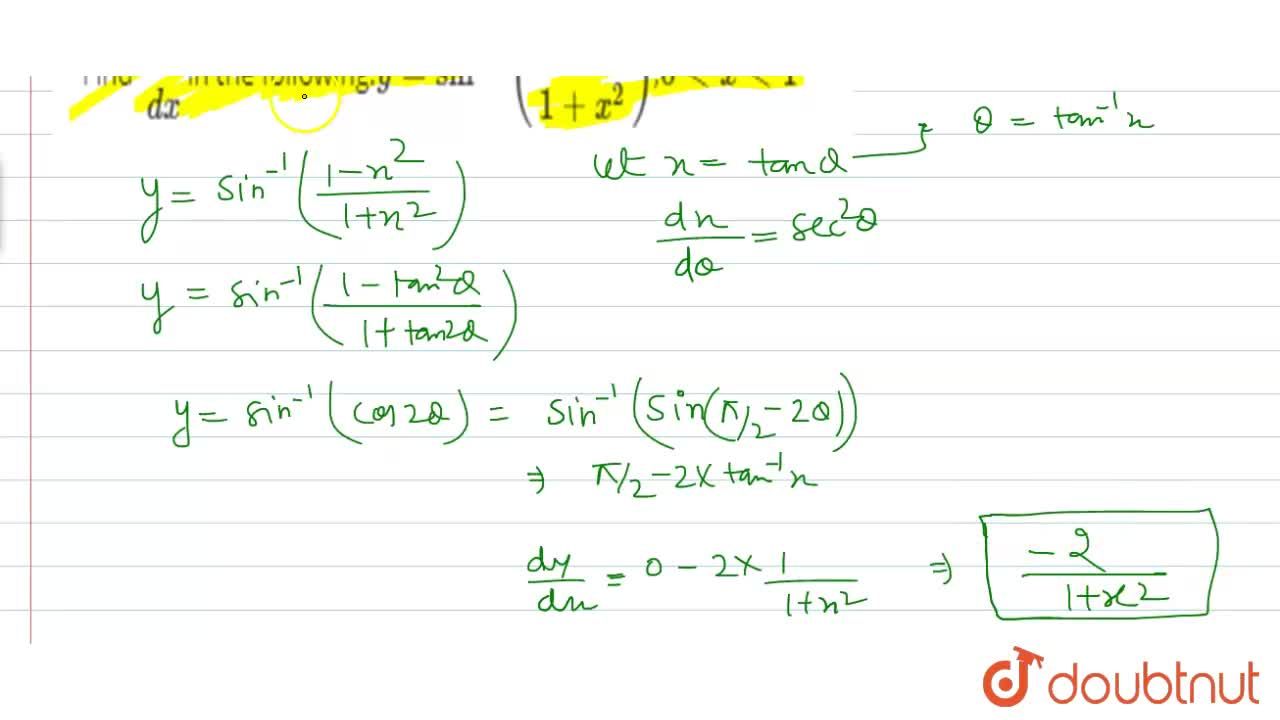 in the following: y = sin
dx ( 1 + x² ) , 0 < x < 1
y = sin⁻¹ ( (1-x²) / (1+x²) )
let x = tan θ → θ = tan⁻¹ x
dx/dθ = sec²θ
y = sin⁻¹ ( (1 - tan²θ) / (1 + tan²θ) )
y = sin⁻¹ ( cos 2θ ) = sin⁻¹ ( sin ( π/2 - 2θ ) )
⇒ π/2 - 2 × tan⁻¹ x
dy/dx = 0 - 2 × 1/(1+x²) ⇒ -2/(1+x²)
doubtnut